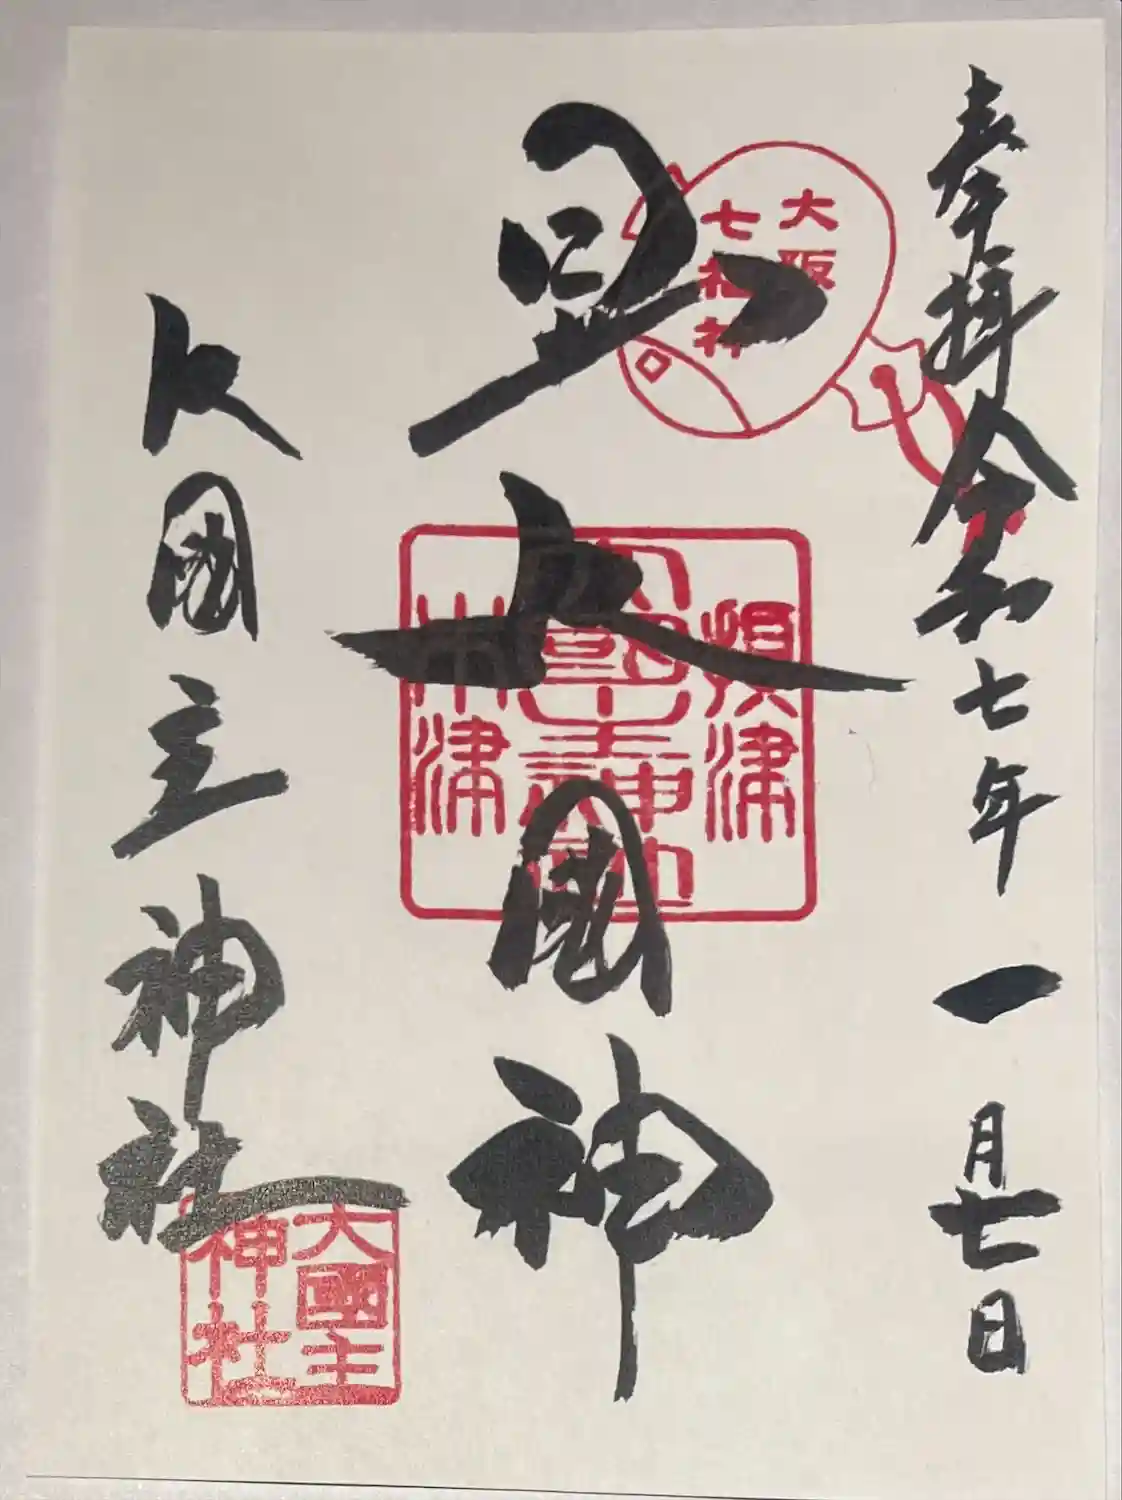 奉拝 令和七年 一月 日
大阪
七福神
日出大國神
摂津
大國主神社
木津
大國主神社
大國主
神社